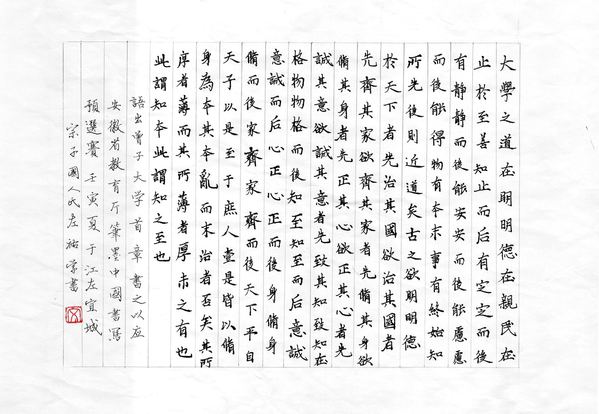 大學之道在明明德在親民在
止於至善知止而后有定定而後
有靜靜而後能安安而後能慮慮
而後能得物有本末事有終始知
所先後則近道矣古之欲明明德
於天下者先治其國欲治其國者
先齊其家欲齊其家者先脩其身欲
脩其身者先正其心欲正其心者先
誠其意欲誠其意者先致其知致知在
格物物格而後知至知至而后意誠
意誠而后心正心正而後身脩身
脩而後家齊家齊而後天下平自
天子以是至于庶人壹是皆以脩
身為本其本亂而末治者否矣其所
序者薄而其所薄者厚未之有也
此謂知本此謂知之至也
語出曾子大学首章書之以应
安徽省教育厅筆墨中國書寫
預選賽壬寅夏于江左宣城
宗子國人氏左書